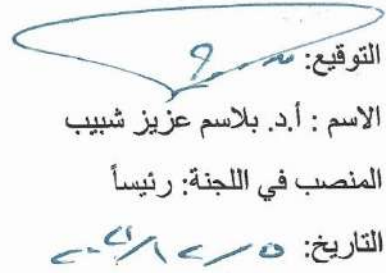 التوقيع:
الاسم : أ.د. بلاسم عزيز شبيب
المنصب في اللجنة: رئيساً
التاريخ: